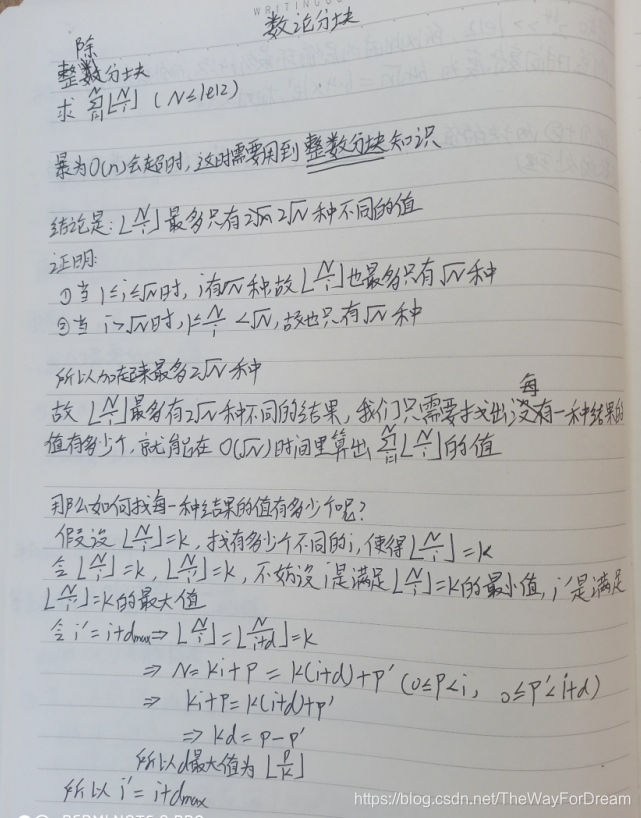 WRITING
数论分块
除
整数分块
求 ∑_{i=1}^{N}⌊N/i⌋ (N≤1e12)
暴力O(n)会超时,这时需要用到整数分块知识
结论是:⌊N/i⌋最多只有2√N种不同的值
证明:
①当1≤i≤√N时,i有√N种,故⌊N/i⌋也最多只有√N种
②当i>√N时,1≤N/i<√N,故也只有√N种
所以加起来最多2√N种
每
故⌊N/i⌋最多有2√N种不同的结果,我们只需要找出没有一种结果的
值有多少个,就能在O(√N)时间里算出∑_{i=1}^{N}⌊N/i⌋的值
那么如何找每一种结果的值有多少个呢?
假设⌊N/i⌋=k,找有多少个不同的i,使得⌊N/i⌋=k
令⌊N/i⌋=k,⌊N/i'⌋=k,不妨设i是满足⌊N/i⌋=k的最小值,i'是满足
⌊N/i⌋=k的最大值
令i'=i+dmax⇒⌊N/i⌋=⌊N/(i+d)⌋=k
⇒ N=ki+p=k(i+d)+p' (0≤p<i, 0≤p'<i+d)
⇒ ki+p=k(i+d)+p'
⇒ kd=p-p'
所以d最大值为⌊p/k⌋
所以i'=i+dmax
https://blog.csdn.net/TheWayForDream